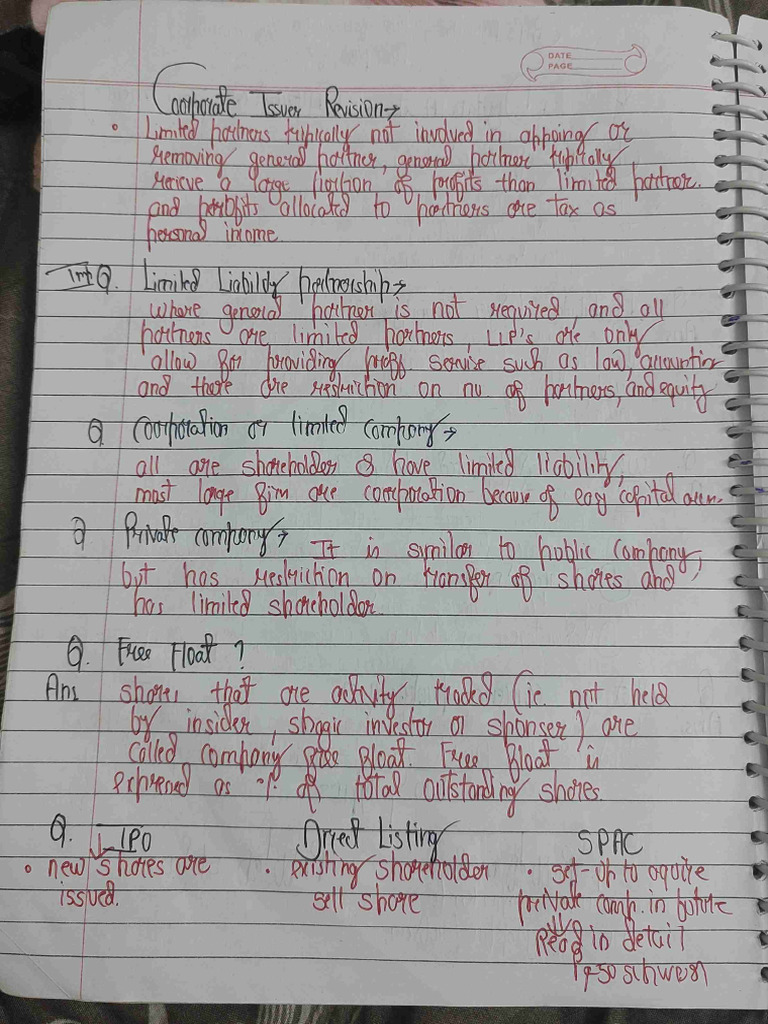 DATE
PAGE
Coorporate Issuer Revision→
• Limited partners typically not involved in appoing or
removing general partner, general partner typically
recieve a large portion of profits than limited partner.
and profits allocated to partners are tax as
personal income.
Imp Q. Limited Liability partnership→
where general partner is not required, and all
partners are limited partners, LLP's are only
allow for providing proff. service such as law, accounting
and there are restriction on nu. of partners, and equity
Q Coorporation or limited company→
all are shareholder & have limited liability,
most large firm are coorporation because of easy capital
Q Private company→ It is similar to public company,
but has restriction on transfer of shares and
has limited shareholder.
Q. Free Float ?
Ans shares that are activity traded (ie. not held
by insider, investor or sponser) are
called company free float. Free float is
expressed as % of total outstanding shares.
Q. ↓ IPO Direct Listing SPAC
• new shares are • existing shareholder • set-up to aquire
issued. sell share private comp. in future
Read in detail
schweser